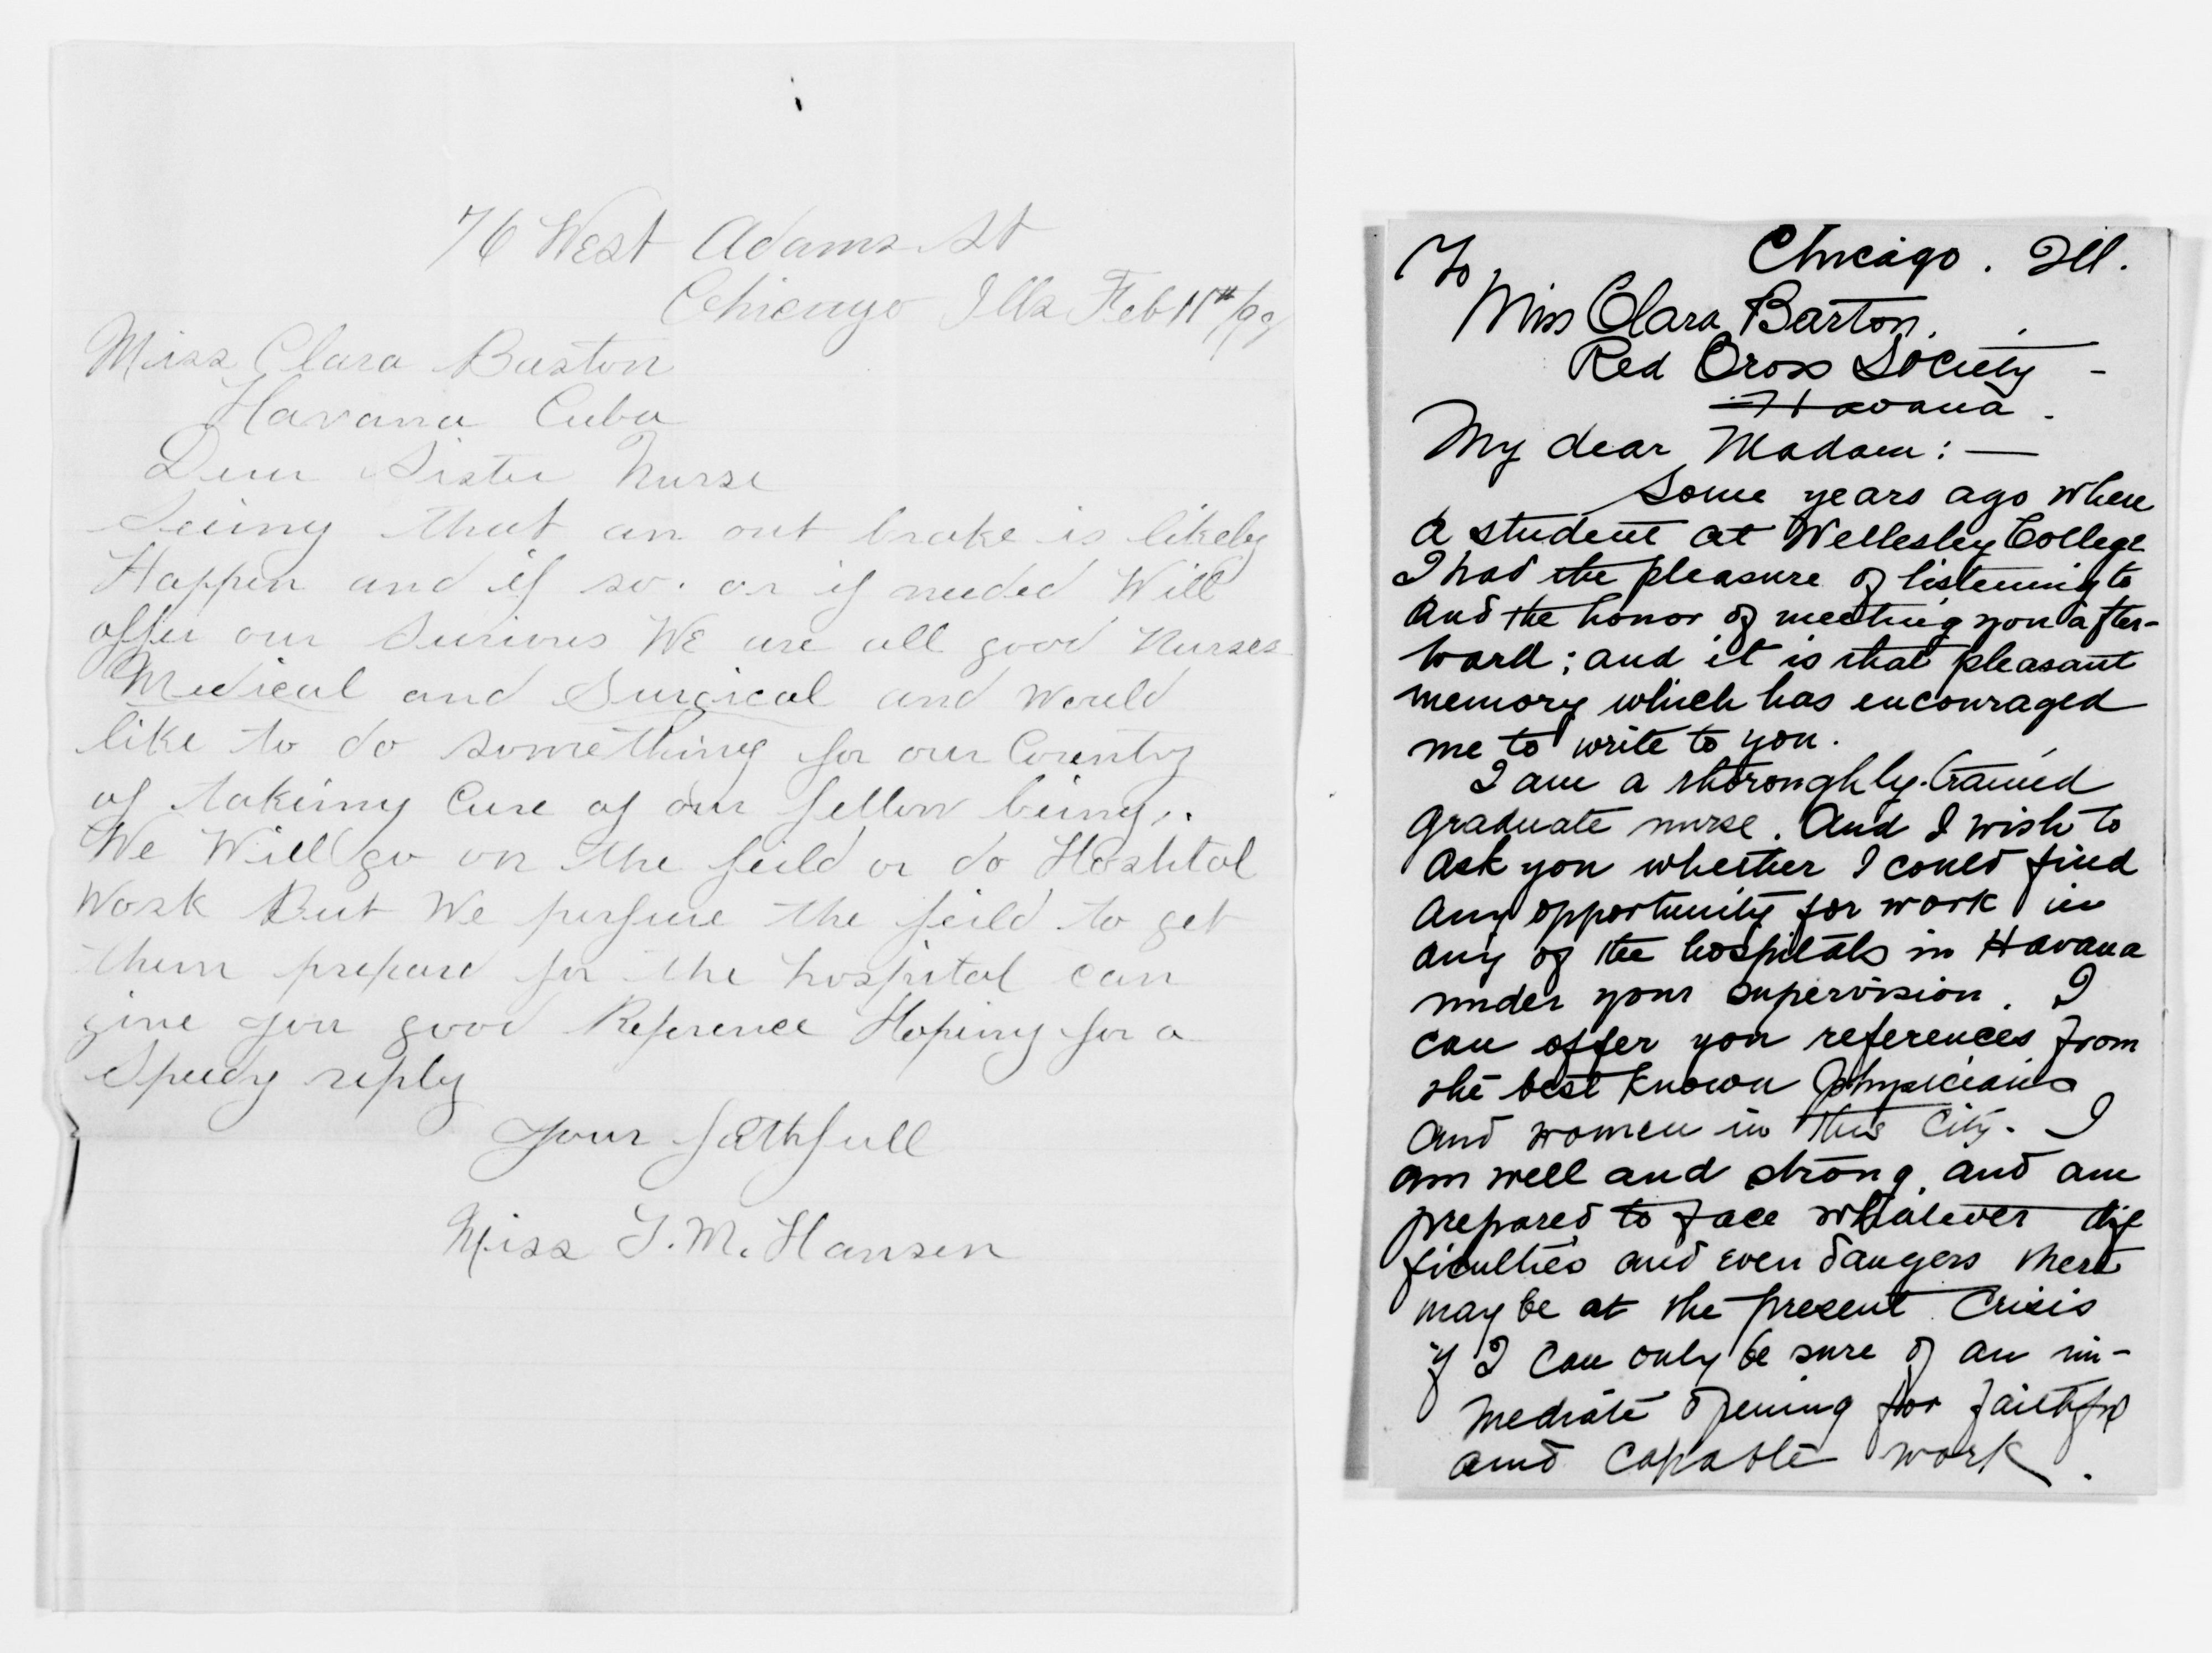 76 West Adams St
Chicago Ills Feb 11th/99
Miss Clara Barton
Havana Cuba
Dear Sister Nurse
Seeing that an out brake is likely
Happen and if so. or if needed Will
offer our Survices We are all good Nurses
Medical and Surgical and Would
like to do something for our Country
of takeing Care of our fellow being..
We Will go on the feild or do Hoshital
Work But We perfure the feild to get
them prepard for the hospital can
give you good Reference Hoping for a
Speedy reply
Your fathfull
Miss T.M. Hansen
Chicago. Ill.
To
Miss Clara Barton.
Red Cross Society –
Havana.
My dear Madam: —
Some years ago when
a student at Wellesley College
I had the pleasure of listening to
and the honor of meeting you after-
ward; and it is that pleasant
memory which has encouraged
me to write to you.
I am a thoroughly-trained
graduate nurse. And I wish to
ask you whether I could find
any opportunity for work in
any of the hospitals in Havana
under your supervision. I
can offer you references from
the best known physicians
and women in this city. I
am well and strong, and am
prepared to face whatever dif
ficulties and even dangers there
may be at the present crisis
if I can only be sure of an im-
mediate opening for faithful
and capable work.